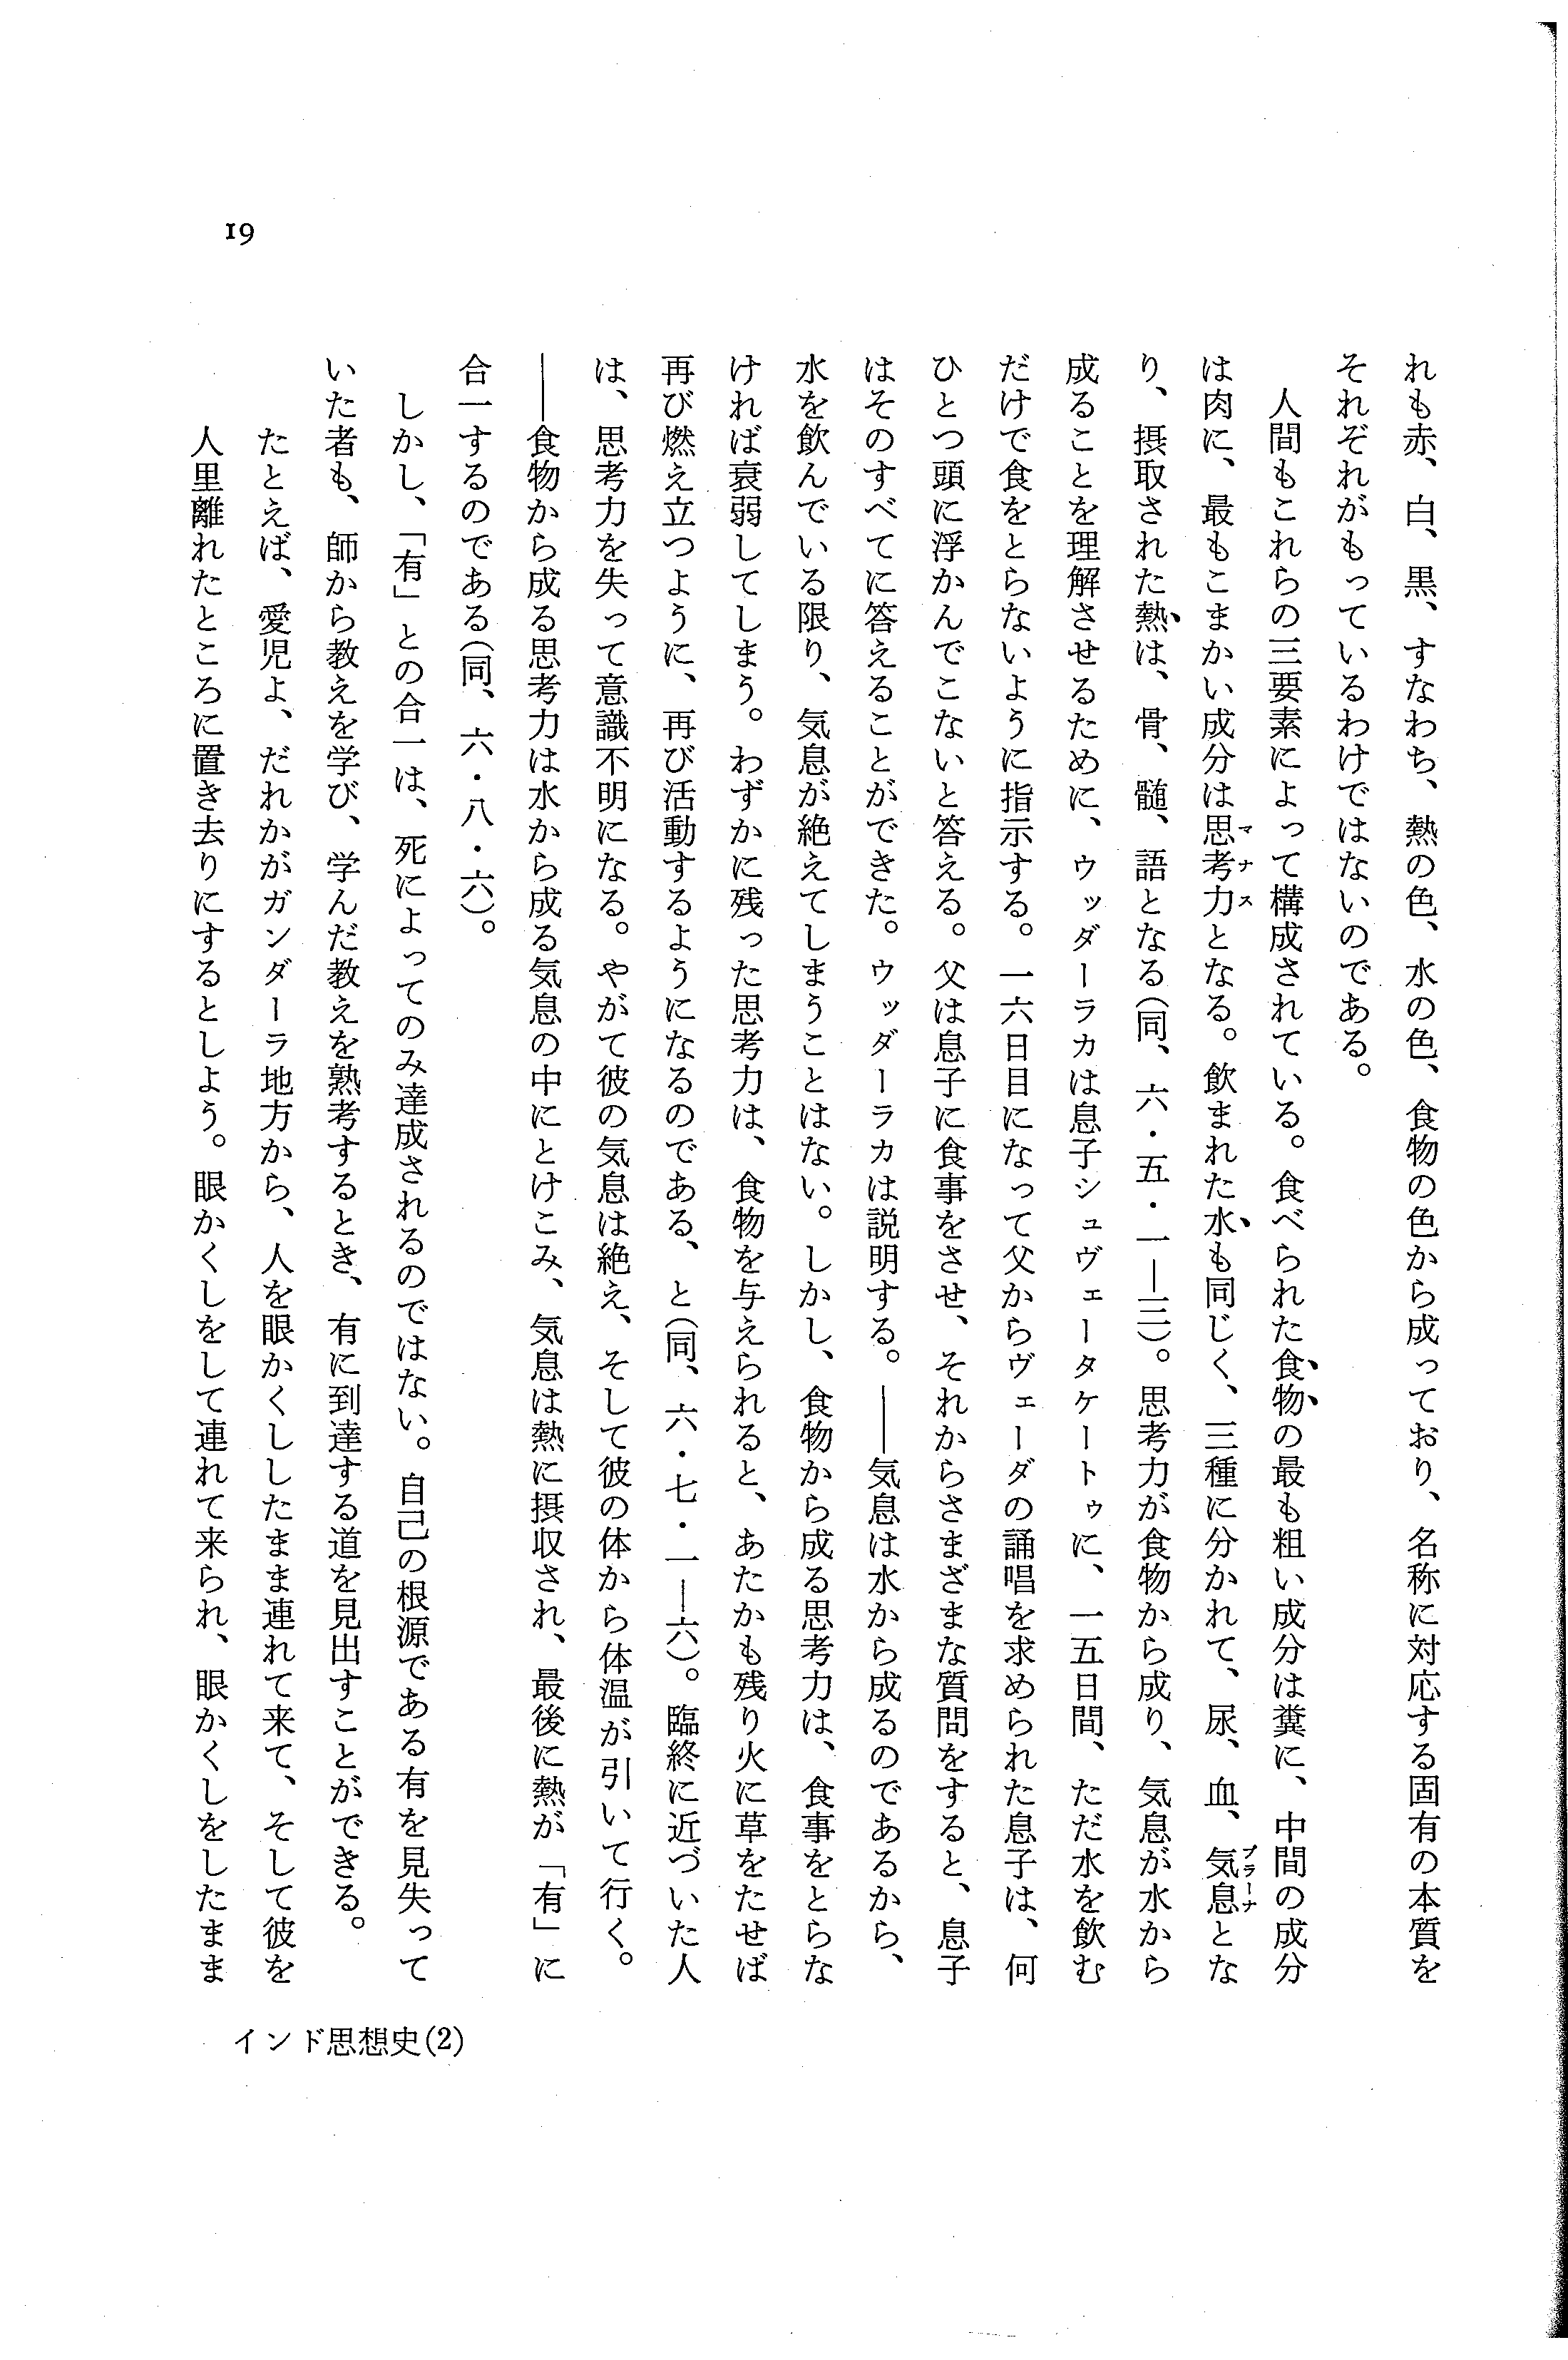 れも赤、白、黒、すなわち、熱の色、水の色、食物の色から成っており、名称に対応する固有の本質を
それぞれがもっているわけではないのである。
人間もこれらの三要素によって構成されている。食べられた食物の最も粗い成分は糞に、中間の成分
は肉に、最もこまかい成分は思考力となる。飲まれた水も同じく、三種に分かれて、尿、血、気息とな
マナス
プラーナ
り、摂取された熱は、骨、髄、語となる(同、六・五・一―三)。思考力が食物から成り、気息が水から
成ることを理解させるために、ウッダーラカは息子シュヴェータケートゥに、一五日間、ただ水を飲む
だけで食をとらないように指示する。一六日目になって父からヴェーダの誦唱を求められた息子は、何
ひとつ頭に浮かんでこないと答える。父は息子に食事をさせ、それからさまざまな質問をすると、息子
はそのすべてに答えることができた。ウッダーラカは説明する。――気息は水から成るのであるから、
水を飲んでいる限り、気息が絶えてしまうことはない。しかし、食物から成る思考力は、食事をとらな
ければ衰弱してしまう。わずかに残った思考力は、食物を与えられると、あたかも残り火に草をたせば
再び燃え立つように、再び活動するようになるのである、と(同、六・七・一―六)。臨終に近づいた人
は、思考力を失って意識不明になる。やがて彼の気息は絶え、そして彼の体から体温が引いて行く。
――食物から成る思考力は水から成る気息の中にとけこみ、気息は熱に摂収され、最後に熱が「有」に
合一するのである(同、六・八・六)。
しかし、「有」との合一は、死によってのみ達成されるのではない。自己の根源である有を見失って
いた者も、師から教えを学び、学んだ教えを熟考するとき、有に到達する道を見出すことができる。
たとえば、愛児よ、だれかがガンダーラ地方から、人を眼かくししたまま連れて来て、そして彼を
人里離れたところに置き去りにするとしよう。眼かくしをして連れて来られ、眼かくしをしたまま
19
インド思想史(2)